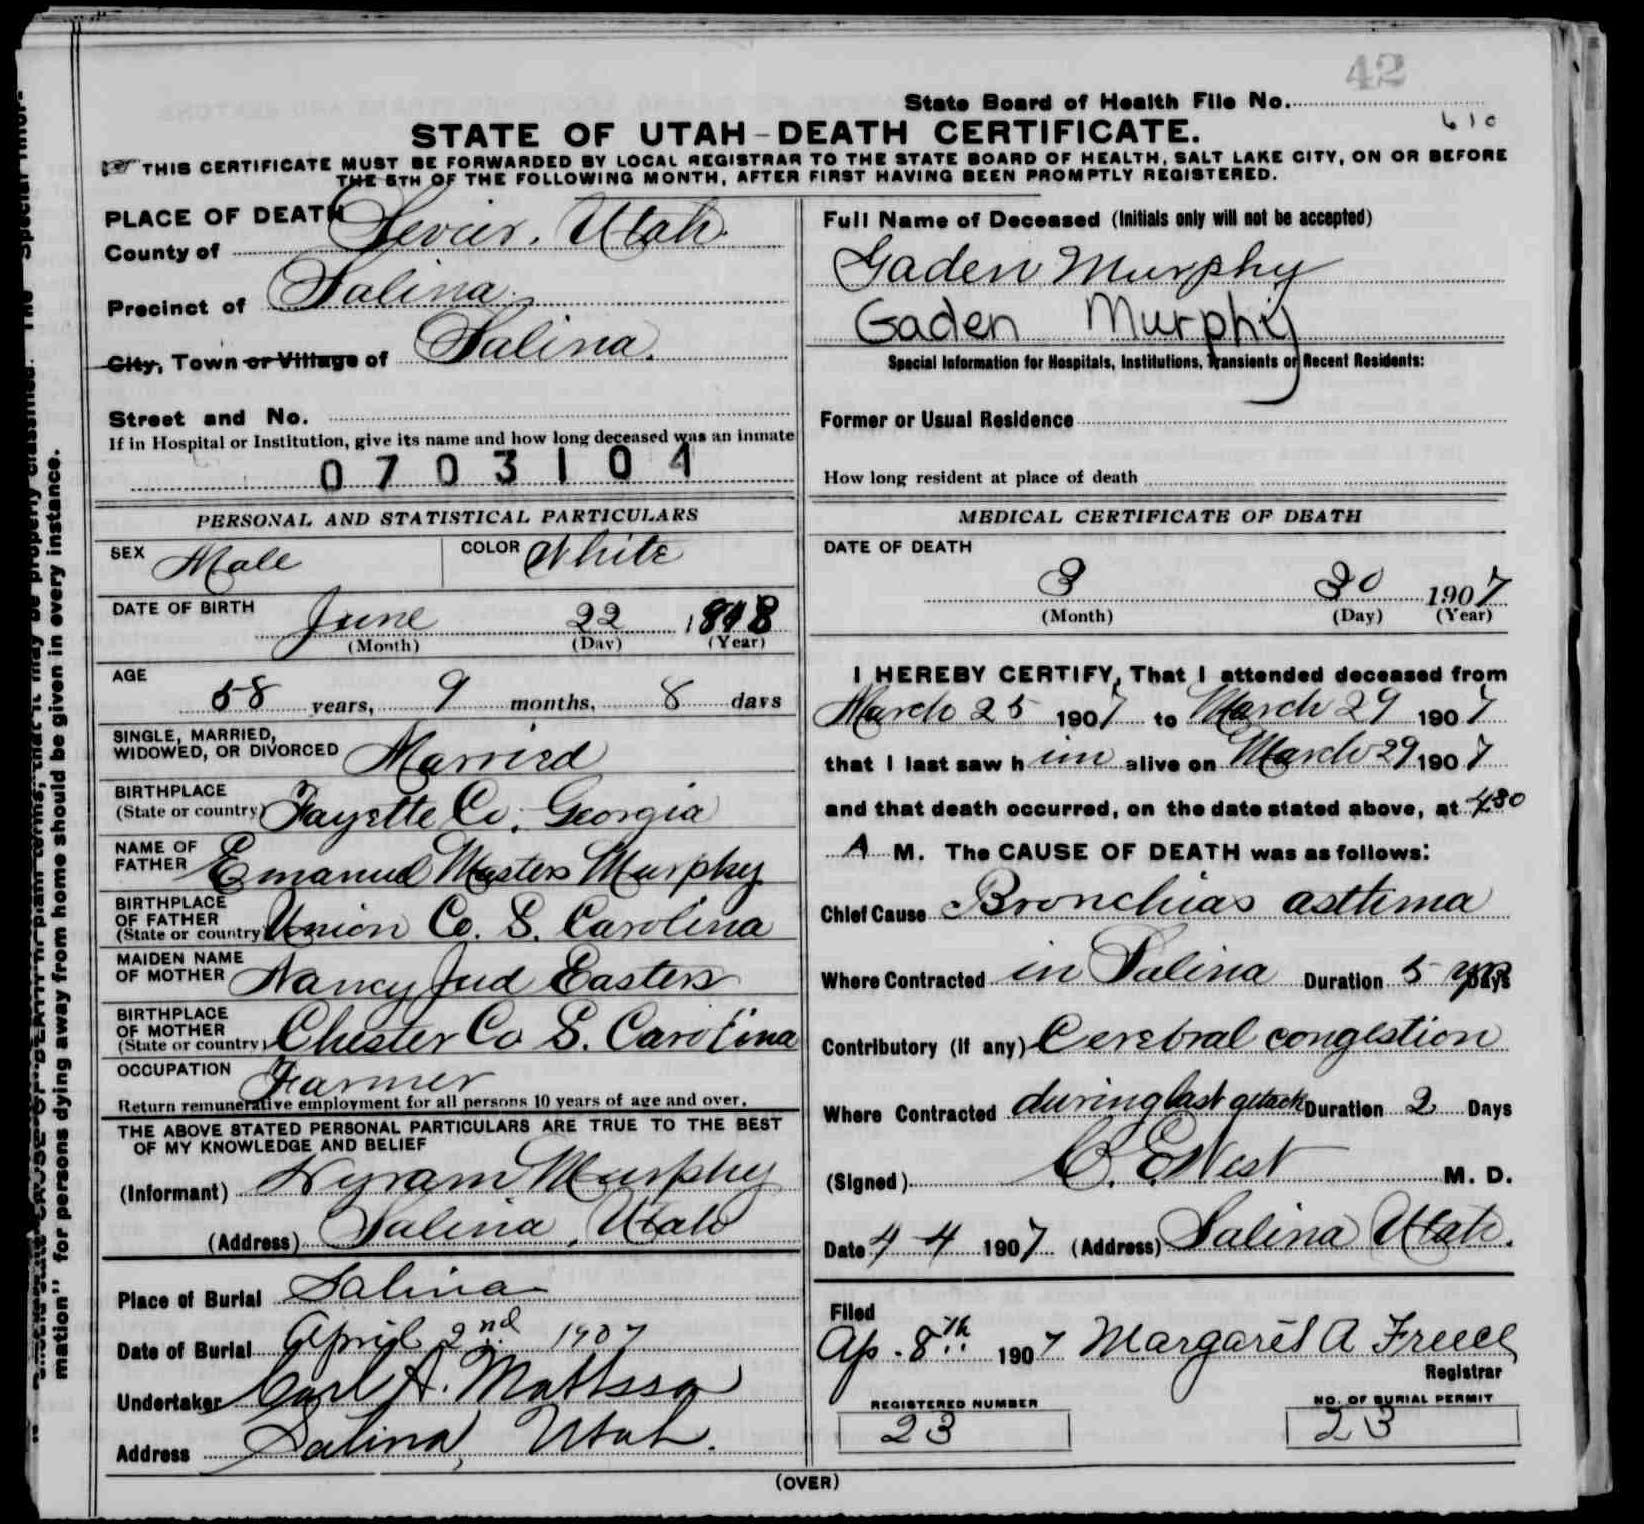 42
State Board of Health File No.
610
STATE OF UTAH-DEATH CERTIFICATE.
THIS CERTIFICATE MUST BE FORWARDED BY LOCAL REGISTRAR TO THE STATE BOARD OF HEALTH, SALT LAKE CITY, ON OR BEFORE
THE 5TH OF THE FOLLOWING MONTH, AFTER FIRST HAVING BEEN PROMPTLY REGISTERED.
PLACE OF DEATH
County of Sevier, Utah.
Precinct of Salina.
City, Town or Village of Salina.
Street and No.
If in Hospital or Institution, give its name and how long deceased was an inmate
0703101
PERSONAL AND STATISTICAL PARTICULARS
SEX Male COLOR White
DATE OF BIRTH
June 22 1848
(Month) (Day) (Year)
AGE
58 years, 9 months, 8 days
SINGLE, MARRIED,
WIDOWED, OR DIVORCED Married
BIRTHPLACE
(State or country) Fayette Co, Georgia
NAME OF
FATHER Emanuel Masters Murphy
BIRTHPLACE
OF FATHER
(State or country) Union Co. S. Carolina
MAIDEN NAME
OF MOTHER Nancy Jud Easters
BIRTHPLACE
OF MOTHER
(State or country) Chester Co S. Carolina
OCCUPATION Farmer
Return remunerative employment for all persons 10 years of age and over.
THE ABOVE STATED PERSONAL PARTICULARS ARE TRUE TO THE BEST
OF MY KNOWLEDGE AND BELIEF
(Informant) Hyram Murphy
(Address) Salina, Utah
Place of Burial Salina
Date of Burial April 2nd 1907
Undertaker Carl A. Mattsson
Address Salina, Utah.
Full Name of Deceased (Initials only will not be accepted)
Gaden Murphy
Gaden Murphy
Special Information for Hospitals, Institutions, Transients or Recent Residents:
Former or Usual Residence
How long resident at place of death
MEDICAL CERTIFICATE OF DEATH
DATE OF DEATH
3 30 1907
(Month) (Day) (Year)
I HEREBY CERTIFY, That I attended deceased from
March 25 1907 to March 29 1907
that I last saw him alive on March 29 1907
and that death occurred, on the date stated above, at 4 30
A M. The CAUSE OF DEATH was as follows:
Chief Cause Bronchias asthma
Where Contracted in Salina Duration 5 yrs Days
Contributory (if any) Cerebral congestion
Where Contracted during last attack Duration 2 Days
(Signed) C. E. West M. D.
Date 4 4 1907 (Address) Salina Utah.
Filed
Ap. 8th 1907 Margaret A
Registrar
REGISTERED NUMBER
23
NO. OF BURIAL PERMIT
23
(OVER)
mation" for persons dying away from home should be given in every instance.